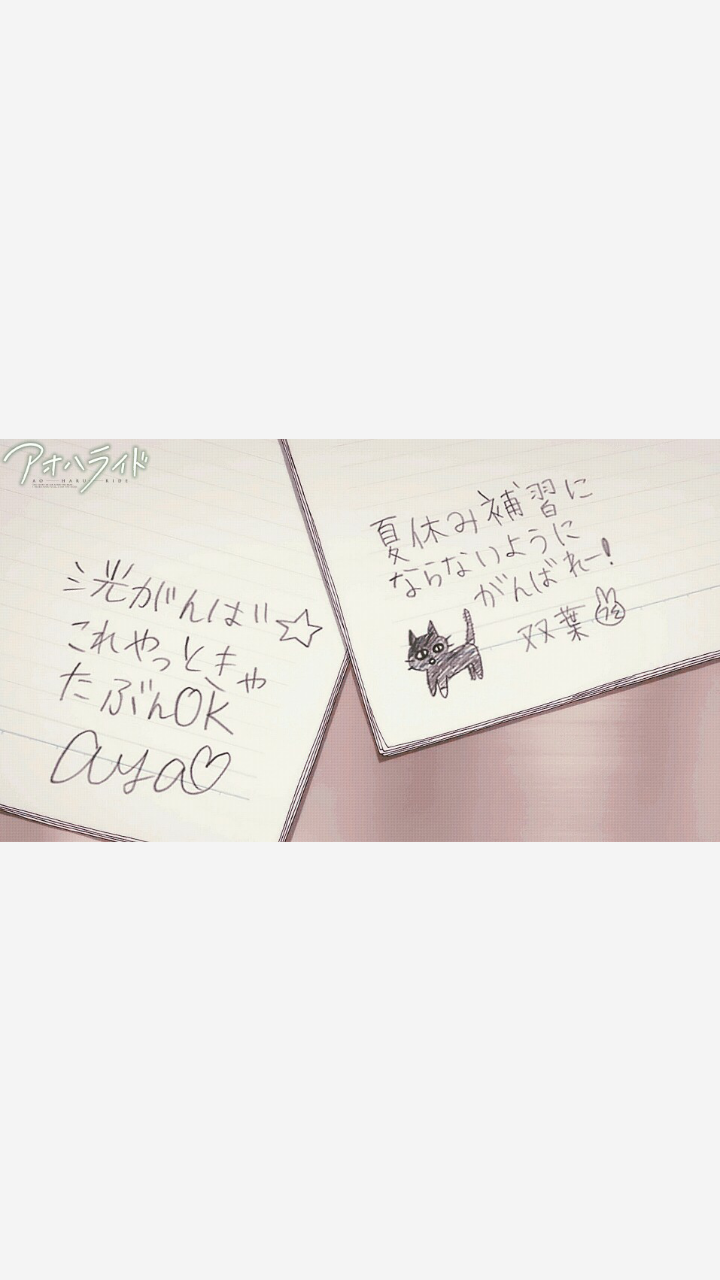 アオハライド
AO HARU RIDE
洸がんば☆
これやっときゃ
たぶんOK
aya♡
夏休み補習に
ならないように
がんばれー!
双葉